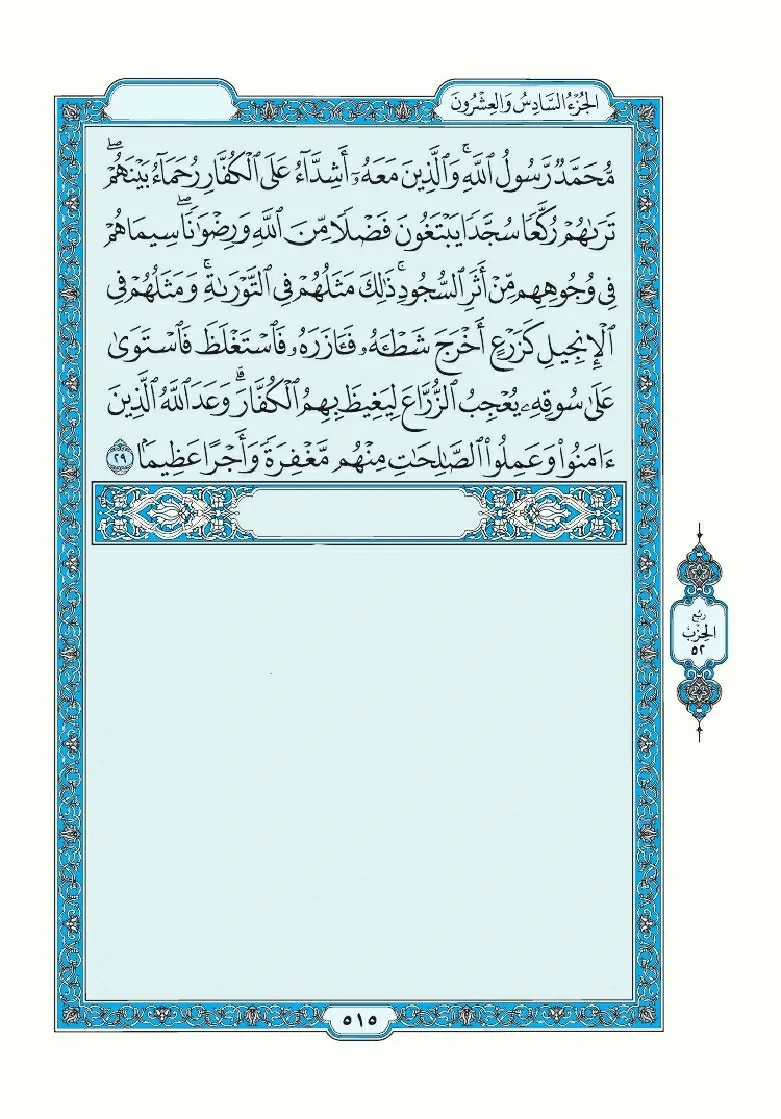 الجُزْءُ السَّادِسُ وَالعِشْرُونَ
مُّحَمَّدٌ رَّسُولُ ٱللَّهِۚ وَٱلَّذِينَ مَعَهُۥٓ أَشِدَّآءُ عَلَى ٱلْكُفَّارِ رُحَمَآءُ بَيْنَهُمْۖ
تَرَىٰهُمْ رُكَّعًا سُجَّدًا يَبْتَغُونَ فَضْلًا مِّنَ ٱللَّهِ وَرِضْوَٰنًاۖ سِيمَاهُمْ
فِى وُجُوهِهِم مِّنْ أَثَرِ ٱلسُّجُودِۚ ذَٰلِكَ مَثَلُهُمْ فِى ٱلتَّوْرَىٰةِۚ وَمَثَلُهُمْ فِى
ٱلْإِنجِيلِ كَزَرْعٍ أَخْرَجَ شَطْـَٔهُۥ فَـَٔازَرَهُۥ فَٱسْتَغْلَظَ فَٱسْتَوَىٰ
عَلَىٰ سُوقِهِۦ يُعْجِبُ ٱلزُّرَّاعَ لِيَغِيظَ بِهِمُ ٱلْكُفَّارَۗ وَعَدَ ٱللَّهُ ٱلَّذِينَ
ءَامَنُوا۟ وَعَمِلُوا۟ ٱلصَّٰلِحَٰتِ مِنْهُم مَّغْفِرَةً وَأَجْرًا عَظِيمًۢا ٢٩
ربع
الحزب
٥٢
٥١٥